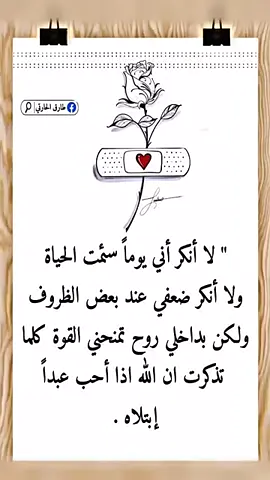 طارق الحارثي
" لا أنكر أني يوماً سئمت الحياة
ولا أنكر ضعفي عند بعض الظروف
ولكن بداخلي روح تمنحني القوة كلما
تذكرت ان الله اذا أحب عبداً
إبتلاه .